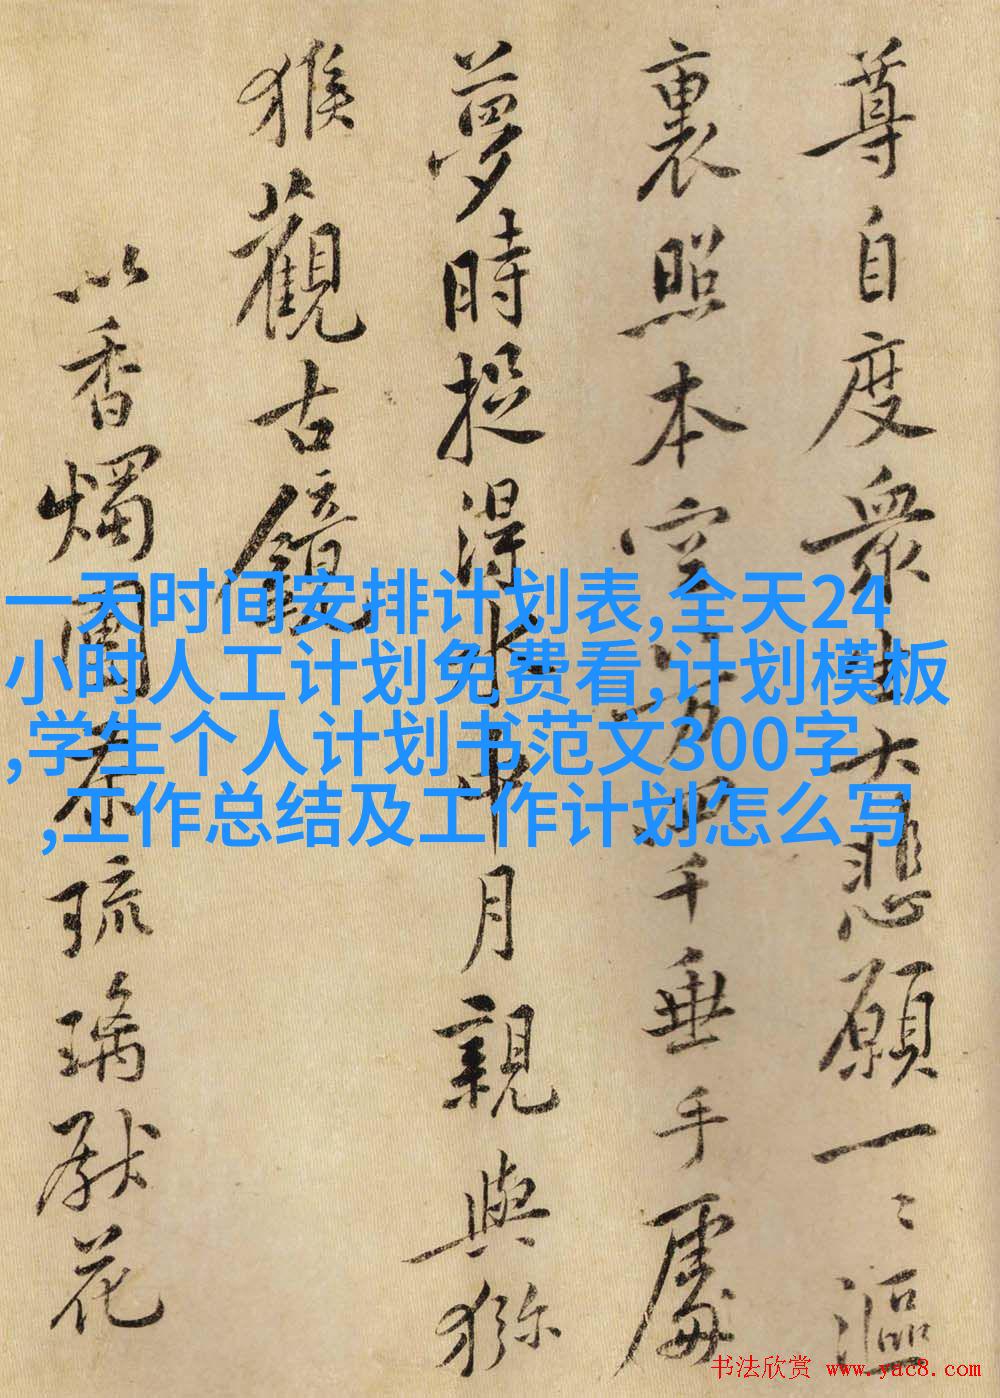 尊自度眾生大悲願一〻漚
裏照本空八万四千垂手處
夢時捉得水中月親與獼
猴觀古鏡
以香燭團茶琉璃獻花
一天时间安排计划表,全天24
小时人工计划免费看,计划模板
,学生个人计划书范文300字
,工作总结及工作计划怎么写
书法欣赏 www.yac8.com